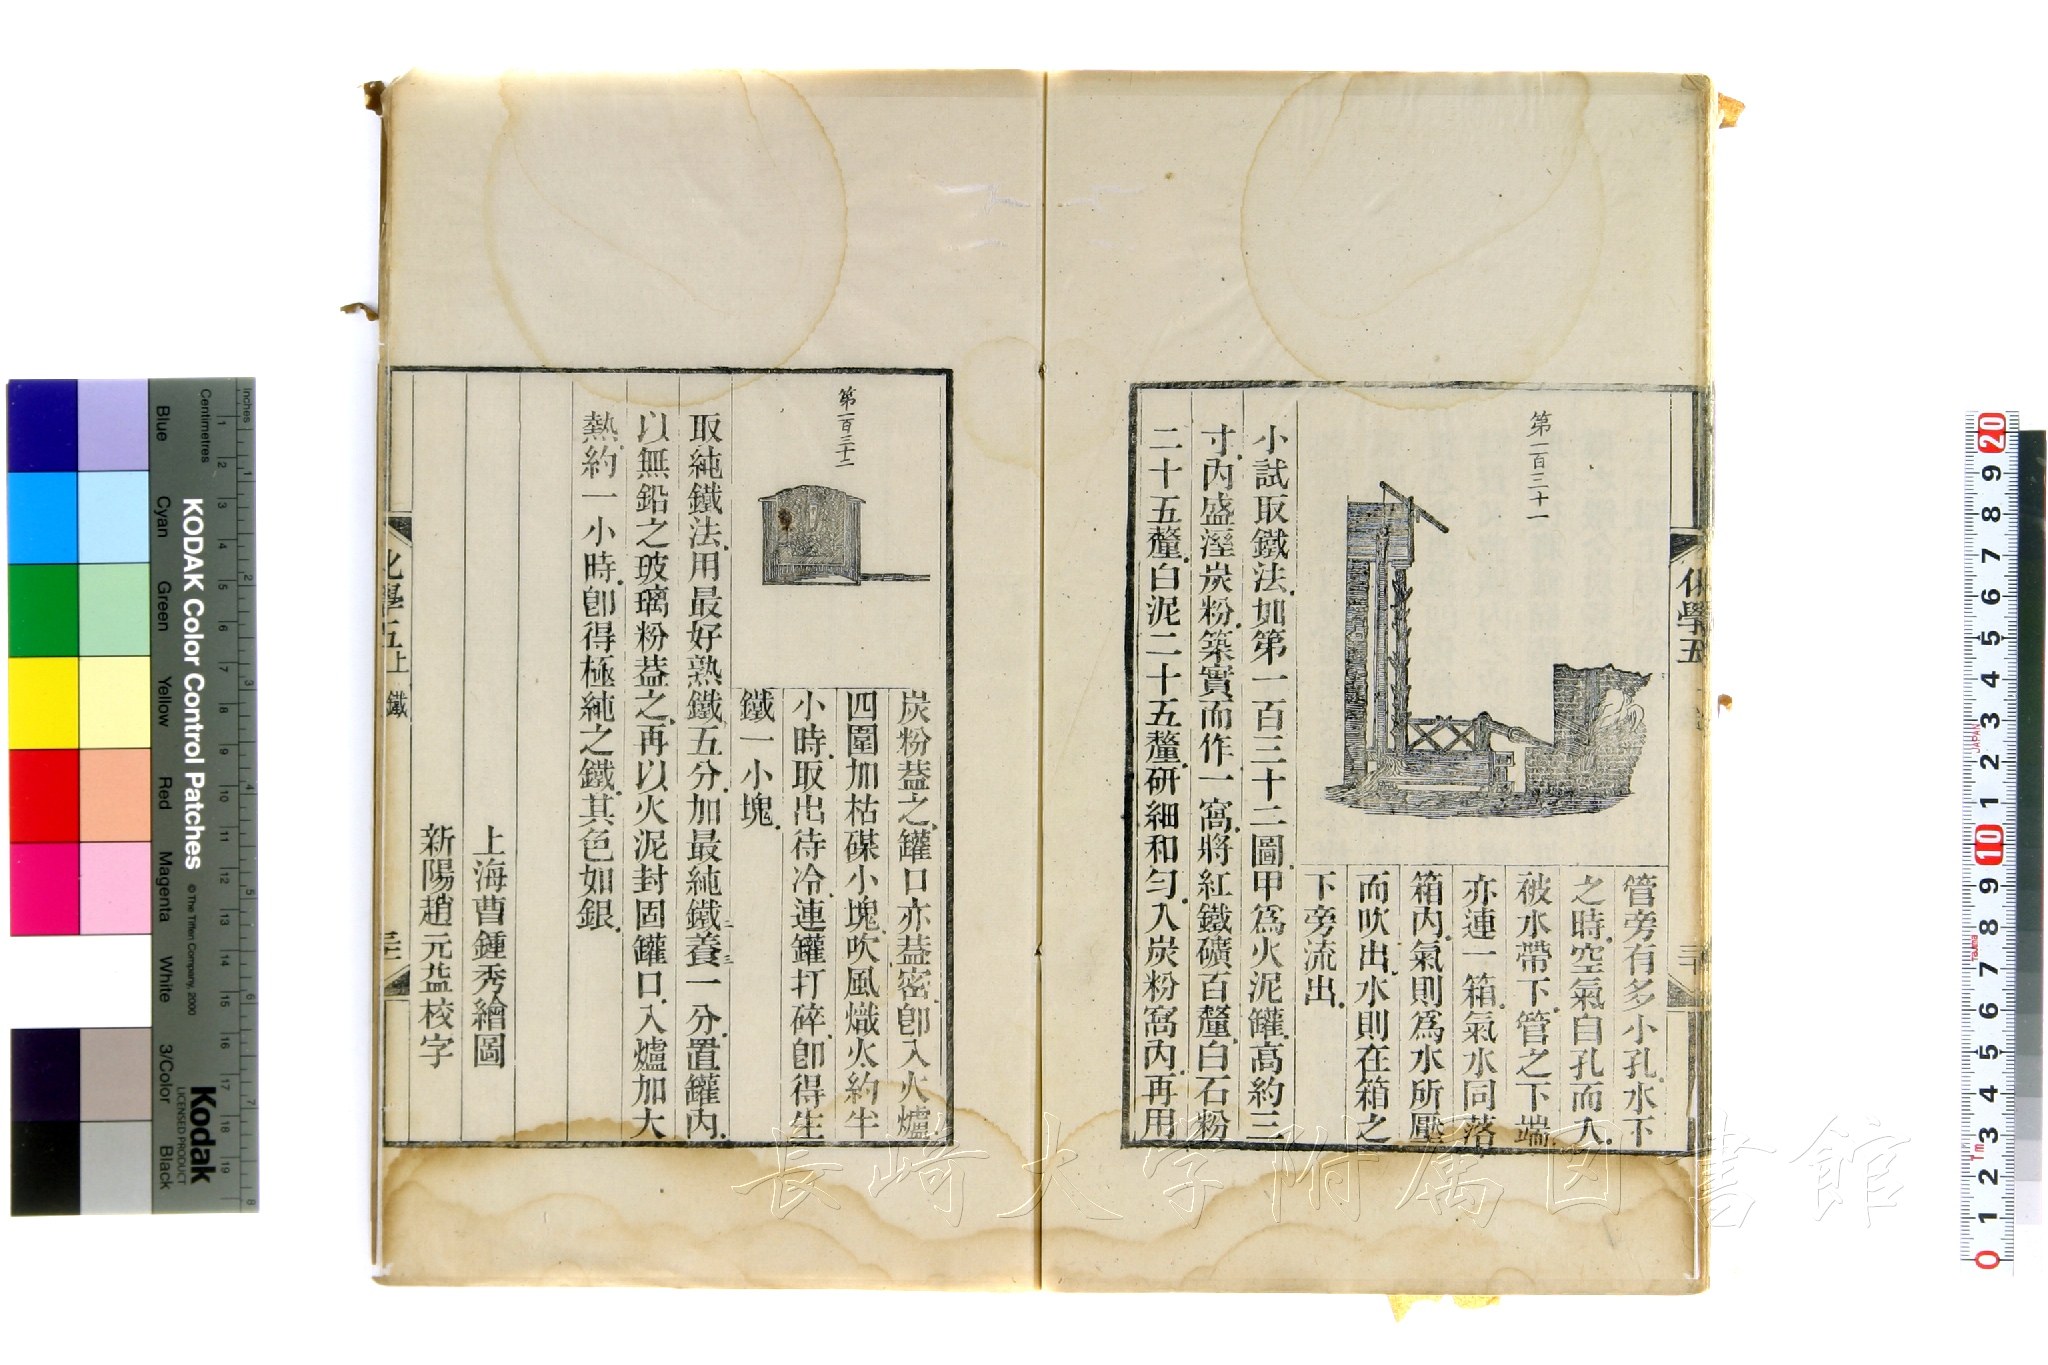 第一百三十一
管旁有多小孔水下
之時空氣自孔而入
被水帶下管之下端
亦連一箱氣水同落
箱內氣則爲水所壓
而吹出水則在箱之
下旁流出
小試取鐵法如第一百三十二圖甲爲火泥罐高約三
寸內盛溼炭粉築實而作一窩將紅鐵礦百釐白石粉
二十五釐白泥二十五釐研細和勻入炭粉窩內再用
化學五
第一百三十二
炭粉葢之罐口亦葢密卽入火爐
四圍加枯煤小塊吹風熾火約半
小時取出待冷連罐打碎卽得生
鐵一小塊
取純鐵法用最好熟鐵五分加最純鐵二養三一分置罐內
以無鉛之玻璃粉葢之再以火泥封固罐口入爐加大
熱約一小時卽得極純之鐵其色如銀
上海曹鍾秀繪圖
新陽趙元益校字
化學五上 鐵
長崎大学附属図書館
KODAK Color Control Patches
© The Tiffen Company, 2000
Kodak
LICENSED PRODUCT
Inches
Centimetres
Blue
Cyan
Green
Yellow
Red
Magenta
White
3/Color
Black
1 2 3 4 5 6 7 8 9 10 11 12 13 14 15 16 17 18 19
1 2 3 4 5 6 7 8
20 9 8 7 6 5 4 3 2 1 10 9 8 7 6 5 4 3 2 1 0
JAPAN
1m